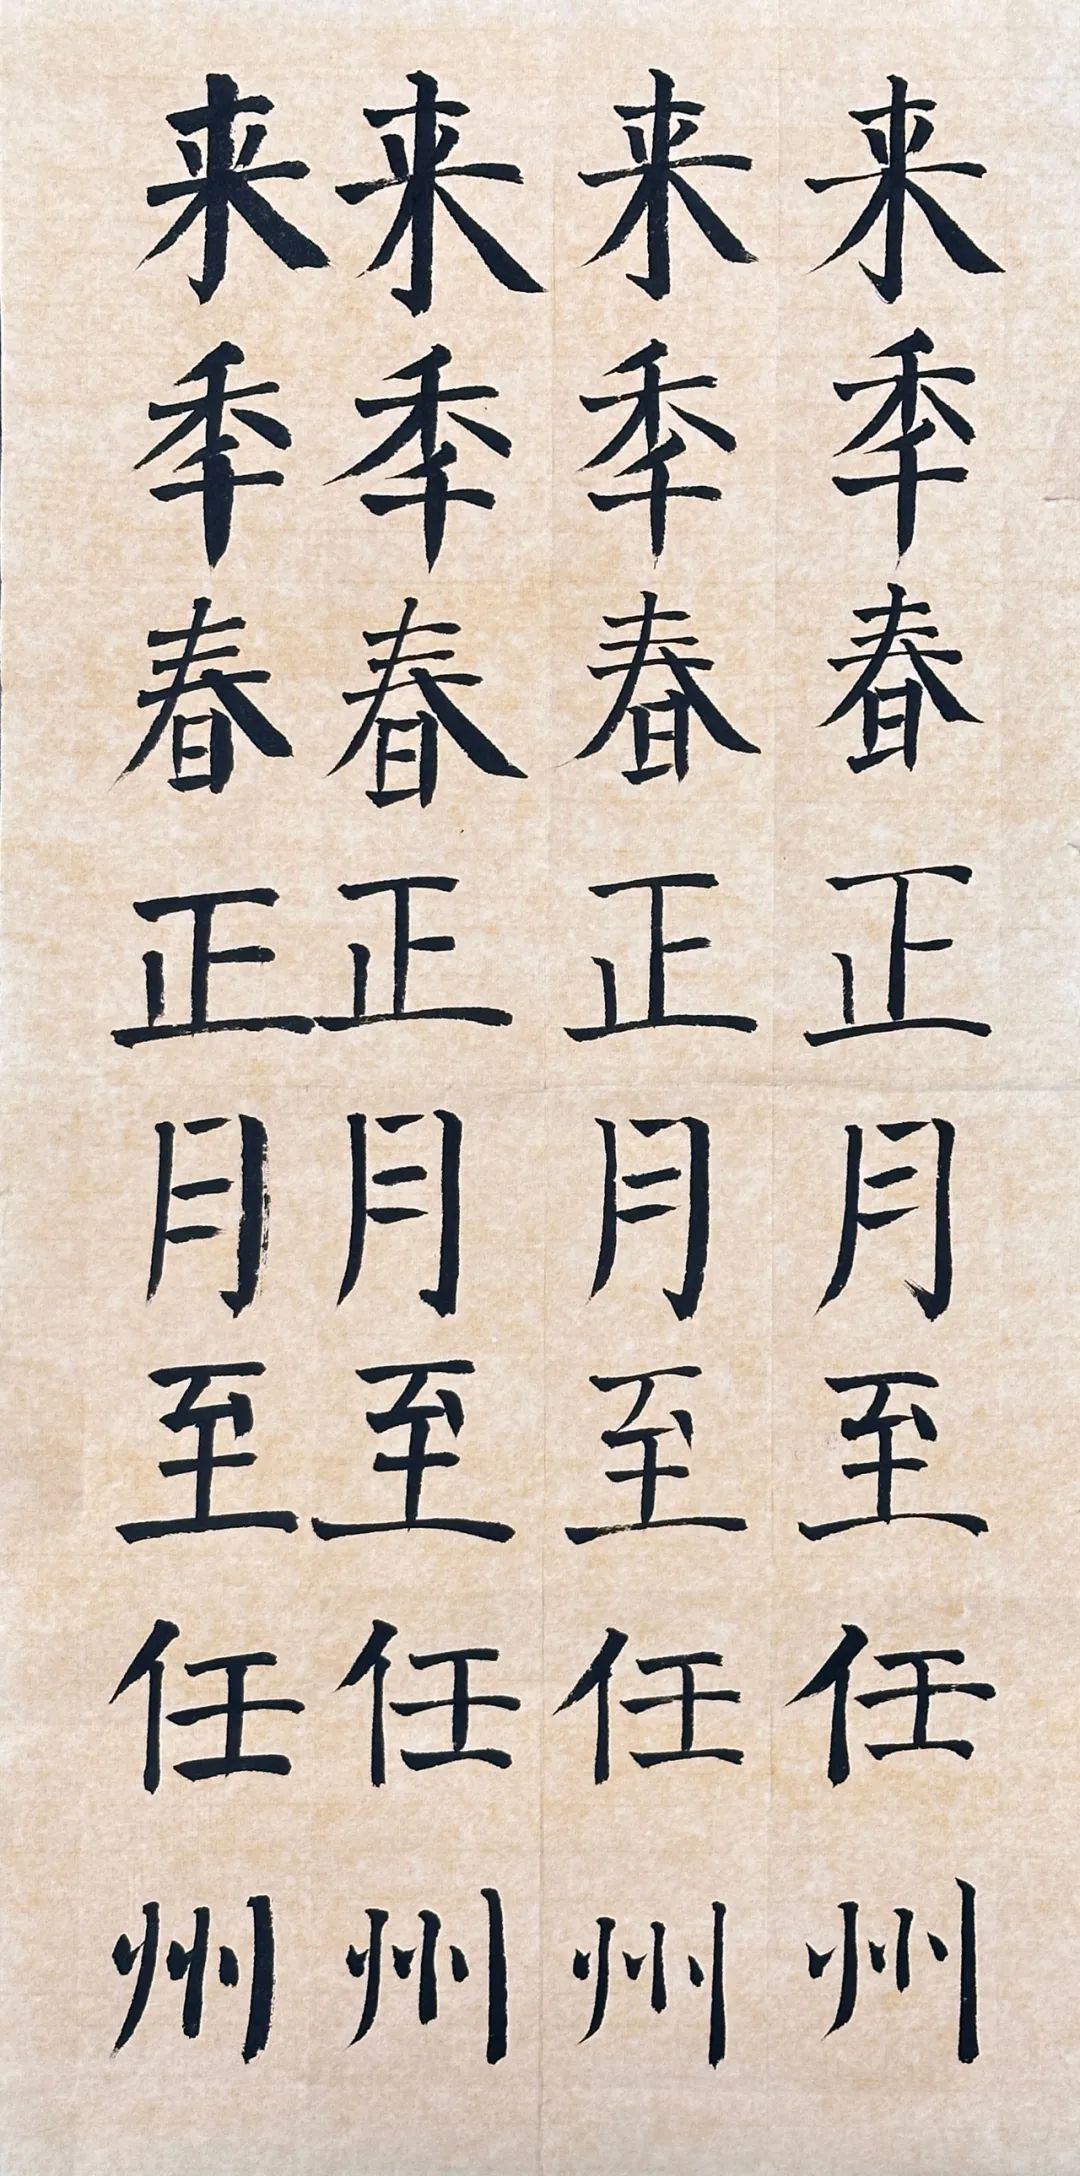 来秊春正月至任州
来秊春正月至任州
来秊春正月至任州
来秊春正月至任州